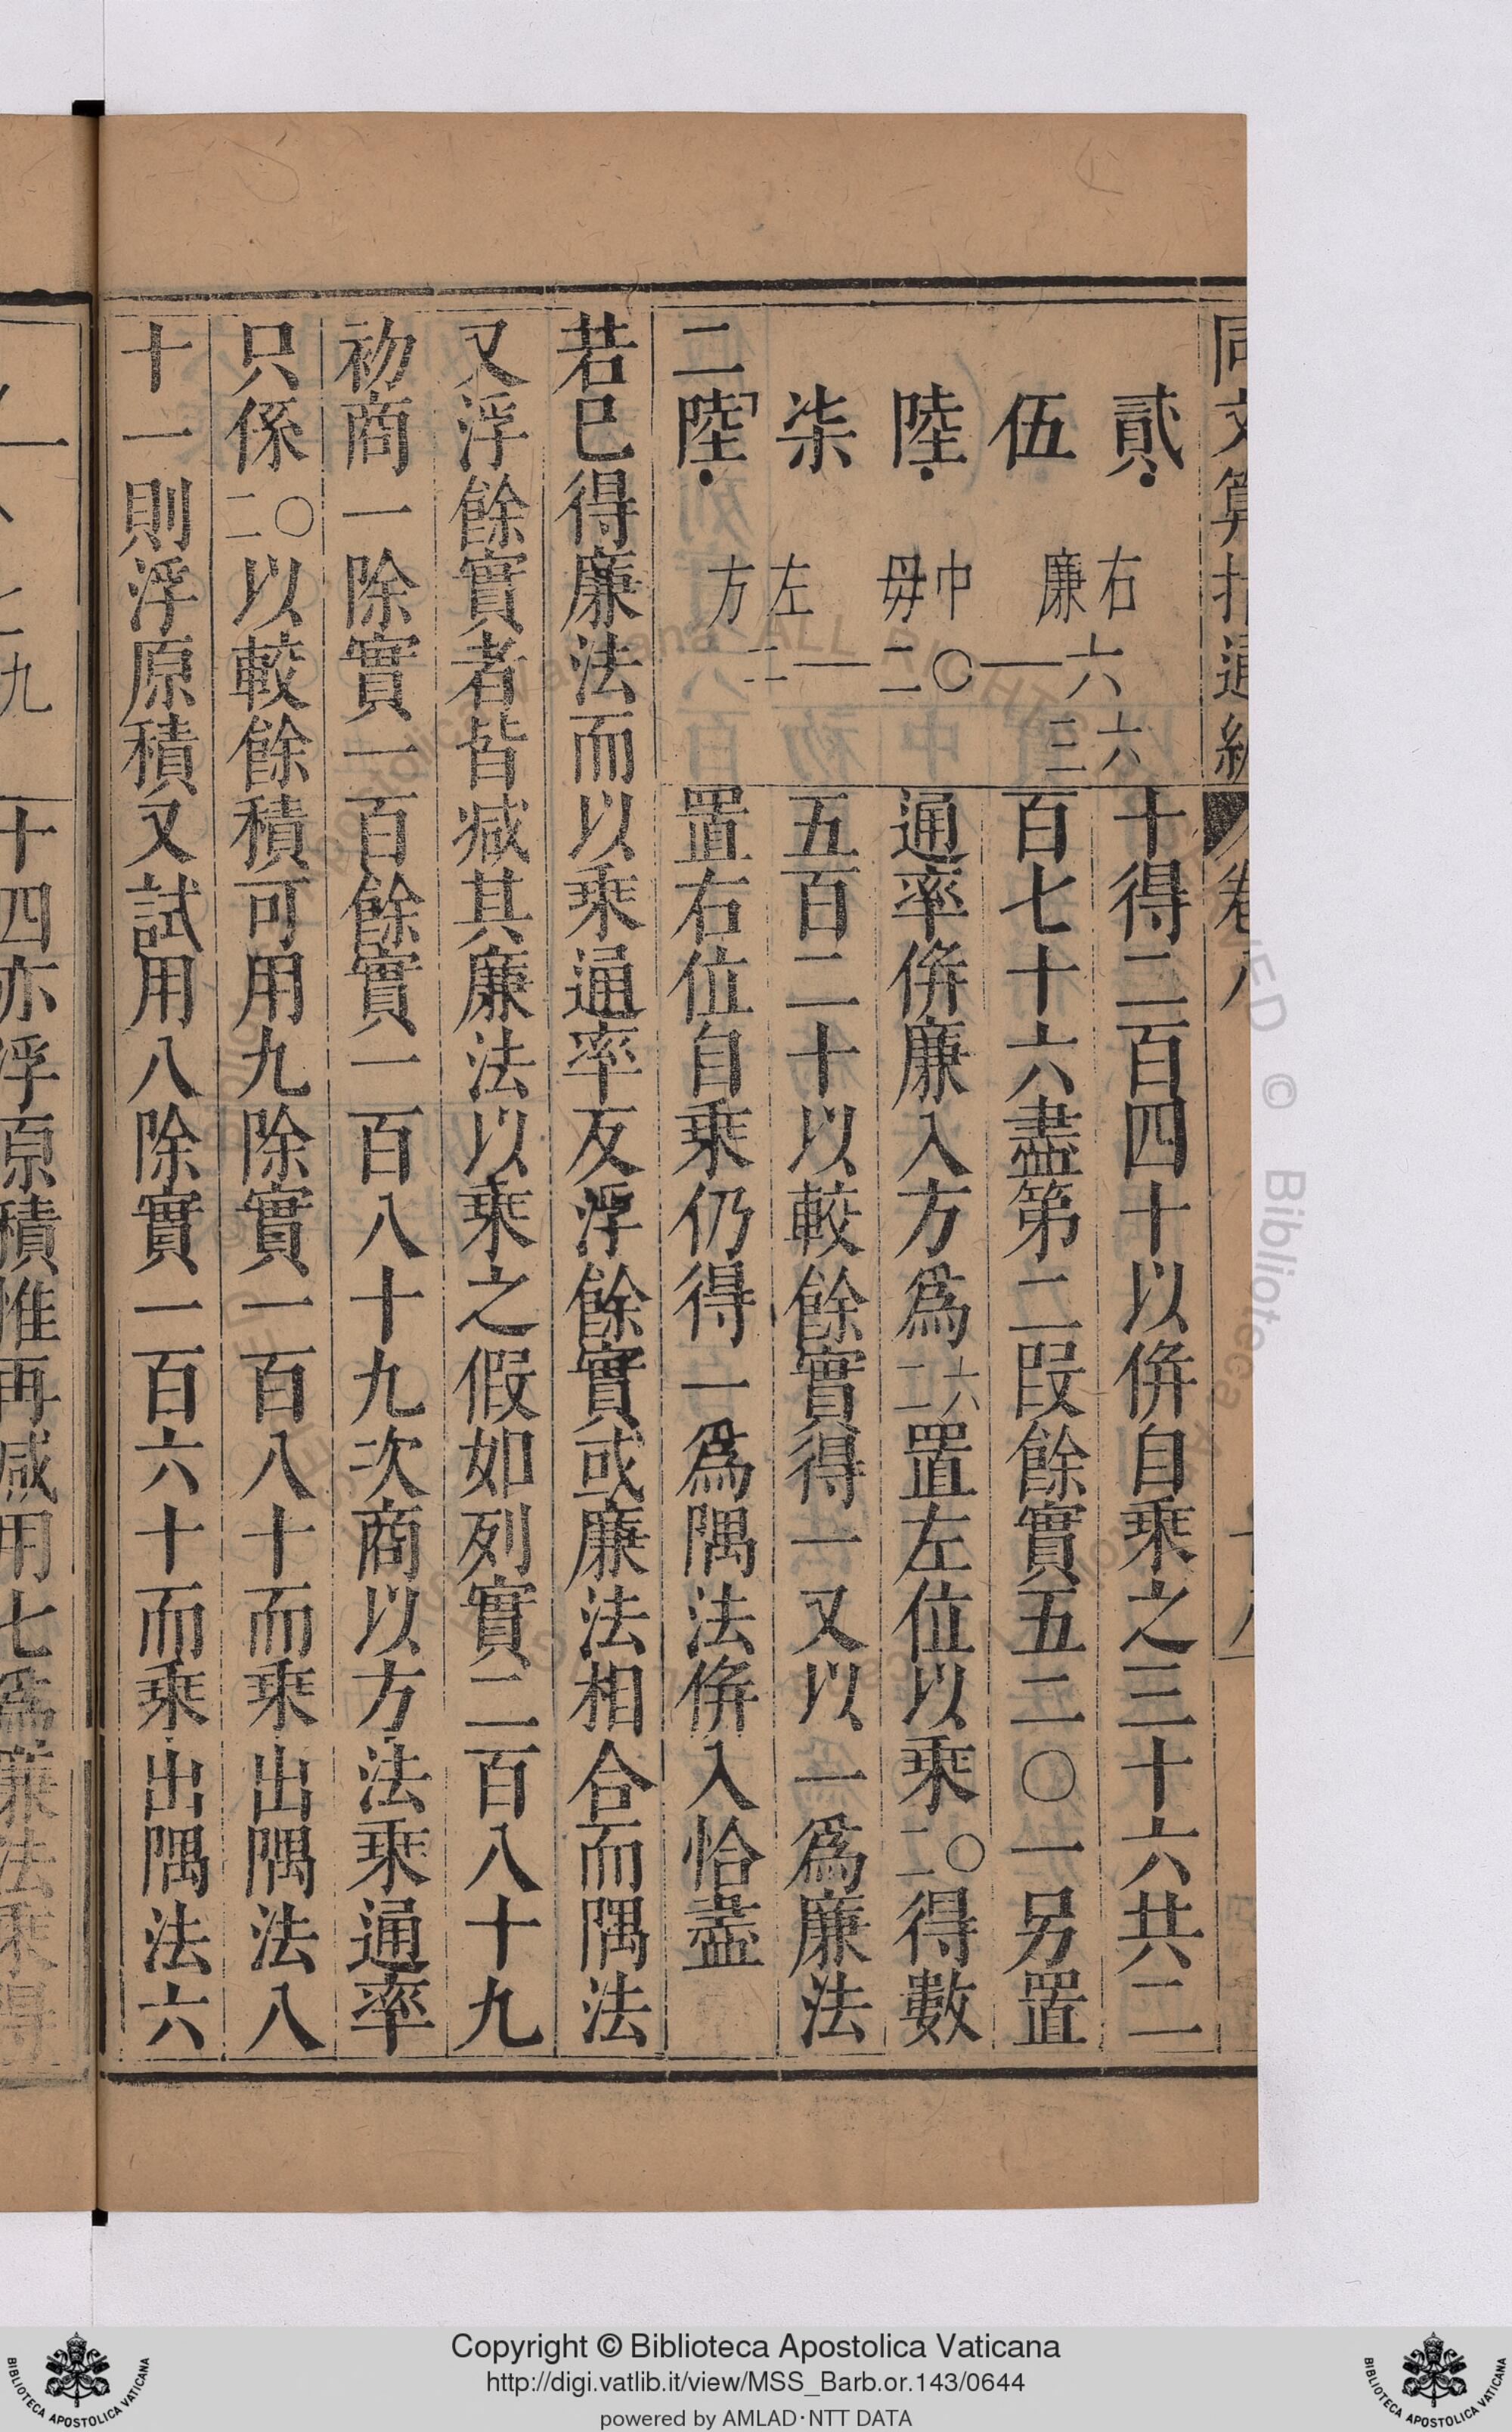 同文算指通編 卷八
十得二百四十以併自乘之三十六共二
百七十六盡第二段餘實五二〇一另置
通率併廉入方爲六二置左位以乘〇二得數
五百二十以較餘實得一又以一爲廉法
置右位自乘仍得一爲隅法併入恰盡
貳
伍
陸
柒
二陸
右廉 六 六三
中毋 〇二
左方 二
若巳得廉法而以乘通率反浮餘實或廉法相合而隅法
又浮餘實者皆減其廉法以乘之假如列實二百八十九
初商一除實一百餘實一百八十九次商以方法乘通率
只係〇二以較餘積可用九除實一百八十而乘出隅法八
十一則浮原積又試用八除實一百六十而乘出隅法六
十四亦浮原積惟再減用七爲廉法乘得
Copyright © Biblioteca Apostolica Vaticana
http://digi.vatlib.it/view/MSS_Barb.or.143/0644
powered by AMLAD·NTT DATA
BIBLIOTECA APOSTOLICA VATICANA
BIBLIOTECA APOSTOLICA VATICANA